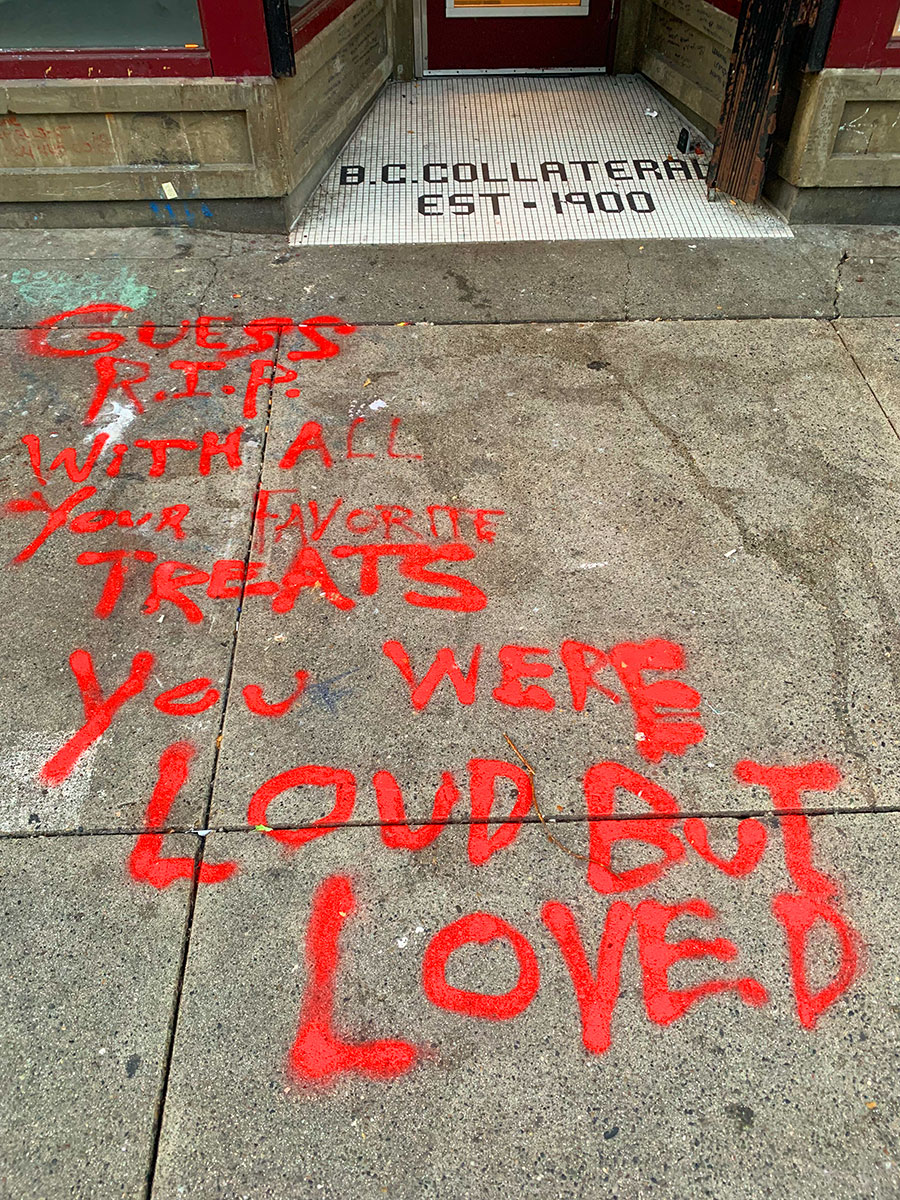 B.C. COLLATERAL
EST-1900
GUESS
R.I.P.
WITH ALL
YOUR FAVORITE
TREATS
YOU WERE
LOUD BUT
LOVED